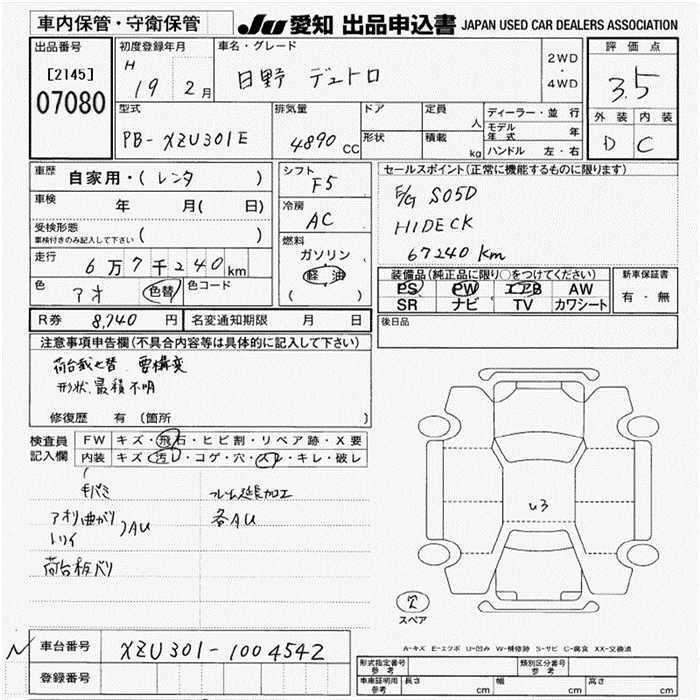 車内保管・守衛保管
JU 愛知 出品申込書 JAPAN USED CAR DEALERS ASSOCIATION
出品番号
[2145]
07080
初度登録年月
H 19 2月
車名・グレード
日野 デュトロ
2WD
・
4WD
評価点
3.5
外装 内装
D C
型式
PB-XZU301E
排気量
4890 cc
ドア
形状
定員 人
積載 kg
ディーラー・並行
モデル年式 年
ハンドル 左・右
車歴
自家用・( レンタ )
車検 年 月( 日)
受検形態
車検付きのみ記入して下さい ( )
走行
6万7千240km
色
アオ 色替
色コード
シフト
F5
冷房
AC
燃料
ガソリン
軽油
( )
セールスポイント(正常に機能するものに限ります)
E/G S05D
HIDECK
67240 Km
装備品(純正品に限り○をつけてください)
PS PW エアB AW
SR ナビ TV カワシート
新車保証書
有・無
R券 8,740 円
名変通知期限 月 日
後日品
注意事項申告欄(不具合内容等は具体的に記入して下さい)
荷台載せ替 要構変
形状、最積不明
修復歴 有(箇所 )
検査員
記入欄
FW キズ・飛石・ヒビ割・リペア跡・X要
内装 キズ・汚レ・コゲ・穴・スレ・キレ・破レ
アオリ曲がり
AU
フレーム延長加工
各AU
荷台板バリ
U3
欠
スペア
A-キズ E-エクボ U-凹み W-補修跡 S-サビ C-腐食 XX-交換済
N
車台番号 XZU301-1004542
登録番号
形式指定番号
参考
類別区分番号
参考
車庫証明用
参考
長さ cm 幅 cm 高さ cm